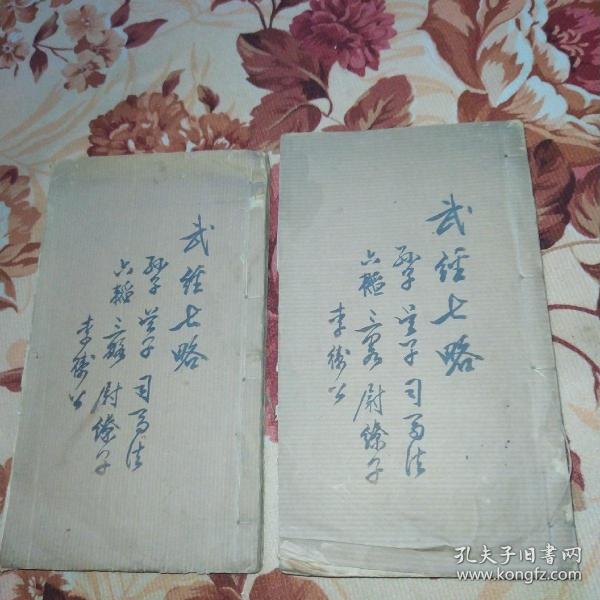 武经七略
孙子 吴子 司马法
六韬 三略 尉缭子
李卫公
武经七略
孙子 吴子 司马法
六韬 三略 尉缭子
李卫公
孔夫子旧书网
www.kongfz.com